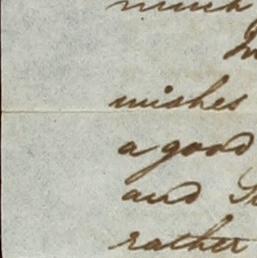 much
wishes
a good
and
rather